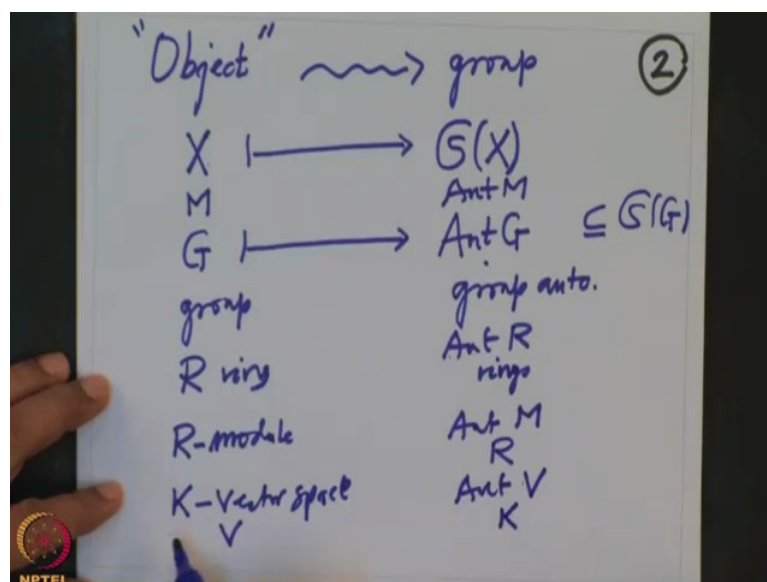 "Object" ⟿ group ②
X ⟼ 𝔖(X)
M Aut M
G ⟼ Aut G ⊆ 𝔖(G)
group group auto.
R ring Aut R
rings
R-module Aut M
R
K-Vector space Aut V
V K
NPTEL